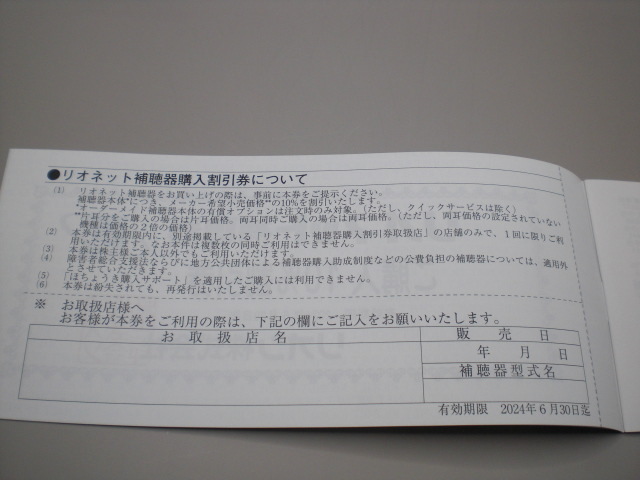 ●リオネット補聴器購入割引券について
(1) リオネット補聴器をお買い上げの際は、事前に本券をご提示ください。
補聴器本体*につき、メーカー希望小売価格**の10%を割引いたします。
*オーダーメイド補聴器本体の有償オプションは注文時のみ対象。(ただし、クイックサービスは除く)
**片耳分をご購入の場合は片耳価格。両耳同時ご購入の場合は両耳価格。(ただし、両耳価格の設定されていない
機種は価格の2倍の価格)
(2) 本券は有効期限内に、別途掲載している「リオネット補聴器購入割引券取扱店」の店舗のみで、1回に限りご利
用いただけます。なお本件は複数枚の同時ご利用はできません。
(3) 本券は株主様ご本人以外でもご利用いただけます。
(4) 障害者総合支援法ならびに地方公共団体による補聴器購入助成制度などの公費負担の補聴器については、適用外
とさせていただきます。
(5) 「はちょうき購入サポート」を適用したご購入には利用できません。
(6) 本券は紛失されても、再発行はいたしません。
※ お取扱店様へ
お客様が本券をご利用の際は、下記の欄にご記入をお願いいたします。
お取扱店名
販売日
年 月 日
補聴器型式名
有効期限 2024年6月30日迄